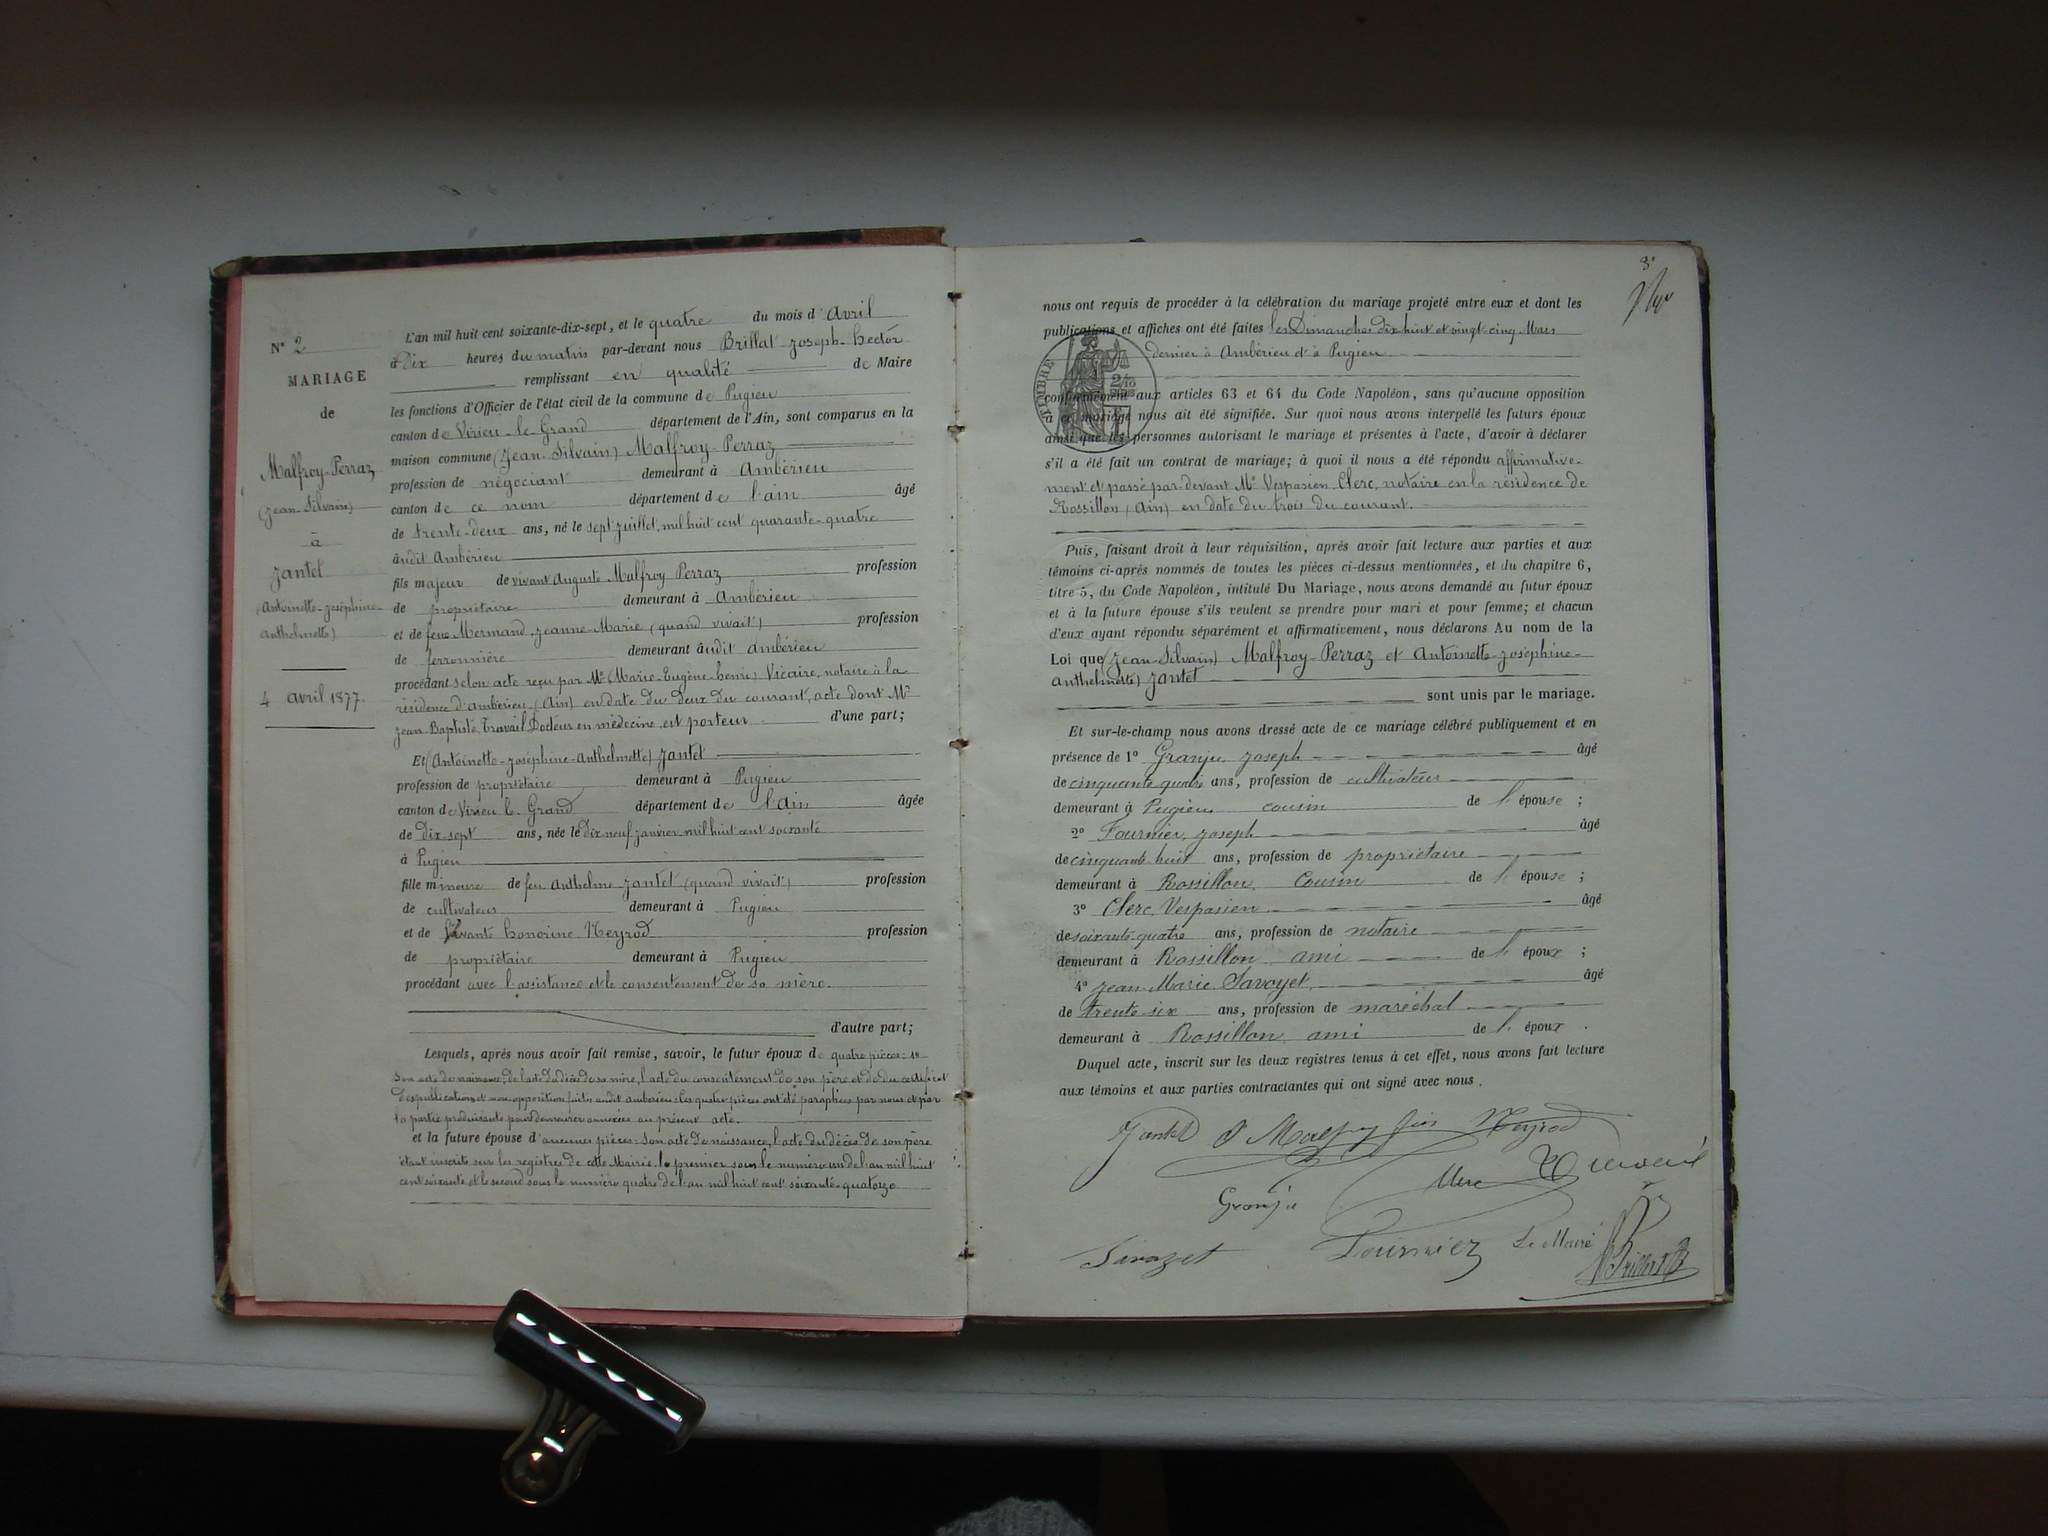 N° 2
MARIAGE
de
Malfroy-Perraz
(Jean-Silvain)
à
Jantet
(Antoinette-Joséphine-
Anthelmette)
4 avril 1877.
L'an mil huit cent soixante-dix-sept, et le quatre du mois d'Avril
à Dix heures du matin par-devant nous Brillat Joseph-hector
remplissant en qualité de Maire
les fonctions d'Officier de l'état civil de la commune de Pugieu
canton de Virieu-le-Grand département de l'Ain, sont comparus en la
maison commune (Jean-Silvain) Malfroy-Perraz
profession de négociant demeurant à Ambérieu
canton de ce nom département de l'ain âgé
de trente-deux ans, né le sept juillet, mil huit cent quarante-quatre
âudit Ambérieu
fils majeur de vivant Auguste Malfroy Perraz profession
de propriétaire demeurant à Ambérieu
et de feue Mermand Jeanne-Marie (quand vivait) profession
de ferronnière demeurant âudit Ambérieu
procédant selon acte reçu par Me (Marie-Eugène-henri) Vicaire, notaire à la
résidence d'ambérieu (Ain) en date du deux du courant, acte dont Mr
Jean-Baptiste, Travail Docteur en médecine, est porteur d'une part;
Et (Antoinette-Joséphine-Anthelmette) Jantet
profession de propriétaire demeurant à Pugieu
canton de Virieu le Grand département de l'ain âgée
de dix-sept ans, née le dix neuf janvier mil huit cent soixante
à Pugieu
fille mineure de feu Anthelme Jantet (quand vivait) profession
de cultivateur demeurant à Pugieu
et de vivante honorine Neyrod profession
de propriétaire demeurant à Pugieu
procédant avec l'assistance et le consentement de sa mère.
d'autre part;
Lesquels, après nous avoir fait remise, savoir, le futur époux de quatre pièces:
son acte de naissance, de l'acte du décès de sa mère, l'acte du consentement de son père et de du certificat
des publications et non opposition faites audit ambérieu. Les quatre pièces ont été paraphées par nous et par
la partie produisante pour demeurer annexées au présent acte.
et la future épouse d'aucunes pièces: son acte de naissance, l'acte du décès de son père
étant inscrits sur les registres de cette Mairie, le premier sous le numéro un de l'an mil huit
cent soixante et le second sous le numéro quatre de l'an mil huit cent soixante-quatorze
3
nous ont requis de procéder à la célébration du mariage projeté entre eux et dont les
publications et affiches ont été faites les Dimanches dix huit et vingt-cinq Mars
dernier à Ambérieu et à Pugieu
TIMBRE
conformément aux articles 63 et 64 du Code Napoléon, sans qu'aucune opposition
à ce mariage nous ait été signifiée. Sur quoi nous avons interpellé les futurs époux
ainsi que les personnes autorisant le mariage et présentes à l'acte, d'avoir à déclarer
s'il a été fait un contrat de mariage; à quoi il nous a été répondu affirmative-
ment et passé par-devant Me Vespasien Clerc, notaire en la résidence de
Rossillon (Ain) en date du trois du courant.
Puis, faisant droit à leur réquisition, après avoir fait lecture aux parties et aux
témoins ci-après nommés de toutes les pièces ci-dessus mentionnées, et du chapitre 6,
titre 5, du Code Napoléon, intitulé Du Mariage, nous avons demandé au futur époux
et à la future épouse s'ils veulent se prendre pour mari et pour femme; et chacun
d'eux ayant répondu séparément et affirmativement, nous déclarons Au nom de la
Loi que (Jean-Silvain) Malfroy-Perraz et Antoinette-Joséphine-
Anthelmette) Jantet
sont unis par le mariage.
Et sur-le-champ nous avons dressé acte de ce mariage célébré publiquement et en
présence de 1° Granju Joseph âgé
de cinquante quatre ans, profession de cultivateur
demeurant à Pugieu, cousin de l'épouse ;
2° Fournier Joseph âgé
de cinquante huit ans, profession de propriétaire
demeurant à Rossillon, Cousin de l'épouse ;
3° Clerc Vespasien âgé
de soixante-quatre ans, profession de notaire
demeurant à Rossillon ami de l'époux ;
4° Jean-Marie Savoyet âgé
de trente-six ans, profession de maréchal
demeurant à Rossillon, ami de l'époux .
Duquel acte, inscrit sur les deux registres tenus à cet effet, nous avons fait lecture
aux témoins et aux parties contractantes qui ont signé avec nous.
Jantet Malfroy fils Neyrod
Clerc Travail
Granju
Savoyet Fournier Le Maire
Brillat